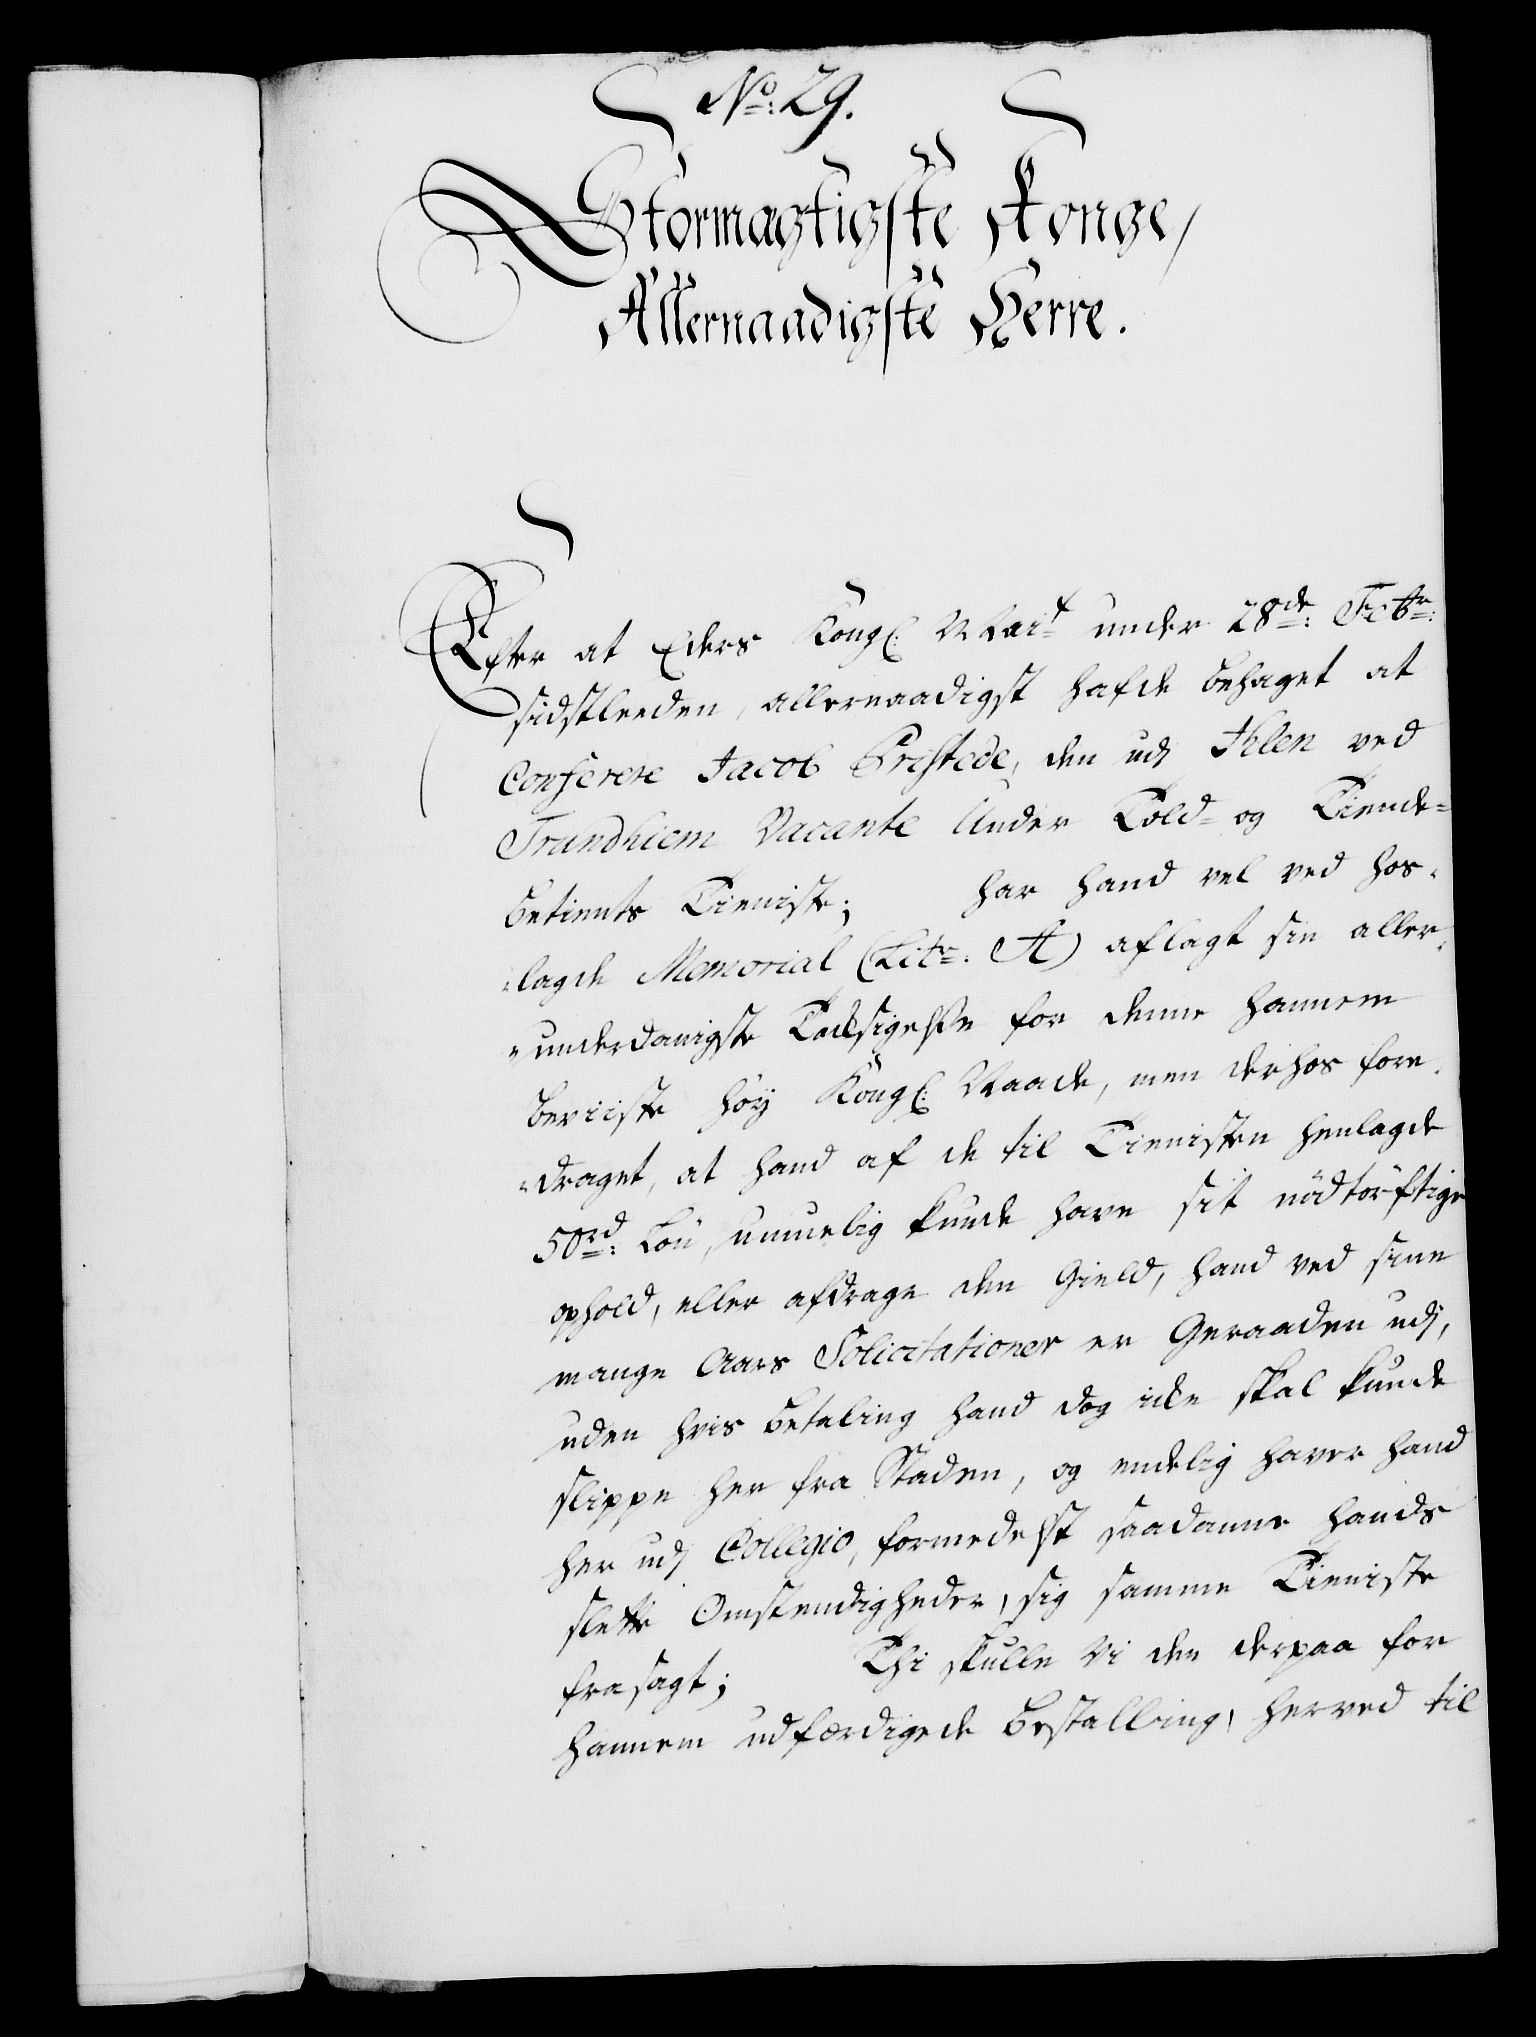 No: 29.
Stormægtigste Konge,
Allernaadigste Herre.
Efter at Eders Kongl: Mait under 28de: Febr:
sidstleeden, allernaadigst hafde behaget at
Conferere Jacob Bristede, den udj Ihlen ved
Trundhiem Vacante Under Told- og Tiende-
betients Tieniste; har hand vel ved hos-
lagde Memorial (Litr: A) aflagt sin aller-
underdanigste Taksigelse for denne hannem
beviiste høy Kongl: Naade, men derhos fore-
draget, at hand af de til Tienisten henlagde
50rd: Løn, umuelig kunde have sit nødtørftige
ophold, eller afdrage den Gield, hand ved sine
mange Aars Solicitationer er Geraaden udj,
uden hvis betaling hand dog icke skal kunde
slippe her fra Staden, og endelig haver hand
her udj Collegio, formedelst saadanne hands
slette Omstendigheder, sig samme Tieniste
frasagt; Thi skulle Vi den derpaa for
hannem udfærdigede Bestalling, herved til